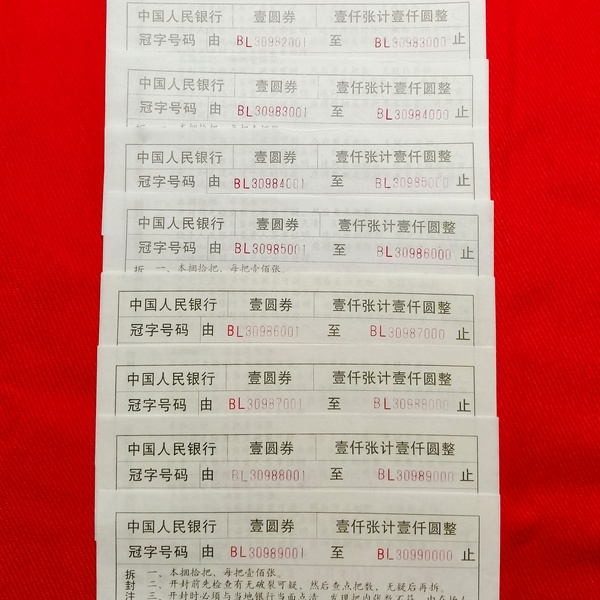 中国人民银行 壹圆券 壹仟张计壹仟圆整
冠字号码 由 BL30982001 至 BL30983000 止
中国人民银行 壹圆券 壹仟张计壹仟圆整
冠字号码 由 BL30983001 至 BL30984000 止
中国人民银行 壹圆券 壹仟张计壹仟圆整
冠字号码 由 BL30984001 至 BL30985000 止
中国人民银行 壹圆券 壹仟张计壹仟圆整
冠字号码 由 BL30985001 至 BL30986000 止
拆 一、本捆拾把，每把壹佰张。
中国人民银行 壹圆券 壹仟张计壹仟圆整
冠字号码 由 BL30986001 至 BL30987000 止
中国人民银行 壹圆券 壹仟张计壹仟圆整
冠字号码 由 BL30987001 至 BL30988000 止
中国人民银行 壹圆券 壹仟张计壹仟圆整
冠字号码 由 BL30988001 至 BL30989000 止
中国人民银行 壹圆券 壹仟张计壹仟圆整
冠字号码 由 BL30989001 至 BL30990000 止
拆 一、本捆拾把，每把壹佰张。
封 二、开封前先检查有无破裂可疑，然后查点把数，无疑后再拆。
注 三、开封时必须与当地银行当面点清，发现把内张数不符，由在场人